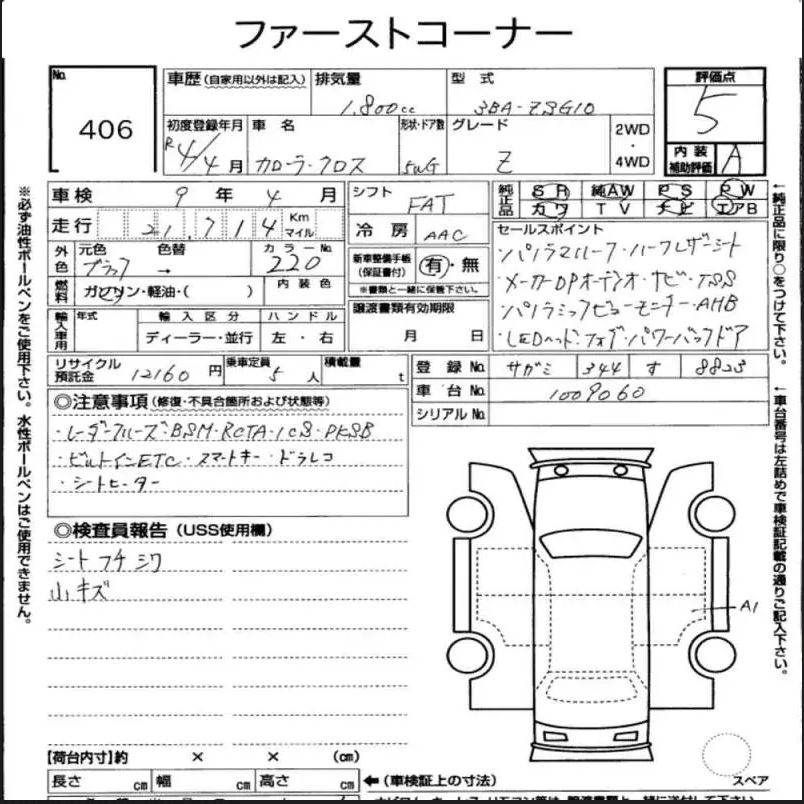 ファーストコーナー
No.
406
車歴 (自家用以外は記入)
排気量
1,800cc
型式
3BA-ZSG10
評価点
5
内装
補助評価
A
初度登録年月
R4/4月
車名
カローラ・クロス
形状・ドア数
5WG
グレード
Z
2WD
・
4WD
車検 9年 4月
走行 21,714 Km
マイル
シフト
FAT
冷房
AAC
純正品
SR 純AW PS PW
カワ TV ナビ エアB
外色
元色
ブラック
色替
→
カラーNo.
220
燃料
ガソリン・軽油・( )
内装色
新車整備手帳
(保証書付)
有・無
※書類と一緒に保管下さい。
譲渡書類有効期限
月 日
セールスポイント
・パノラマルーフ・ハーフレザーシート
・メーカーDPオーディオ・ナビ・TSS
・パノラミックビューモニター・AHB
・LEDヘッド・フォグ・パワーバックドア
輸入車用
年式
輸入区分
ディーラー・並行
ハンドル
左・右
リサイクル
預託金
12160 円
乗車定員
5人
積載量
t
登録No.
サガミ 344 す 8823
車台No.
1009060
シリアルNo.
◎注意事項 (修復・不具合箇所および状態等)
・レーダークルーズ・BSM・RCTA・ICS・PKSB
・ビルトインETC・スマートキー・ドラレコ
・シートヒーター
◎検査員報告 (USS使用欄)
シート フチ シワ
小キズ
A1
【荷台内寸】約 × × (cm)
長さ cm 幅 cm 高さ cm
←(車検証上の寸法)
スペア
※必ず油性ボールペンをご使用下さい。水性ボールペンはご使用できません。
←純正品に限り○をつけて下さい。
←車台番号は左詰めで車検証記載の通りご記入下さい。